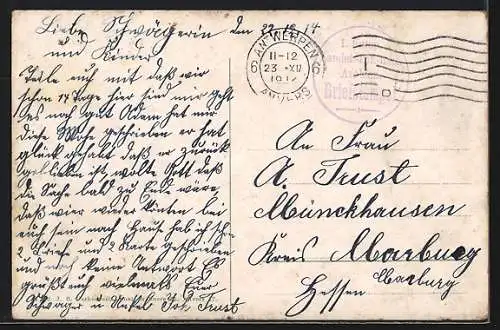 Liebe Schwägerin den 22.12.14
und Kinder
Teile euch mit daß wir
schon 14 Tage hier sind mir geht
es noch gut Adam hat mir
diese Woche geschrieben er hat
glück gehabt daß er zurück
geblieben ist, wolte Gott daß
die Sache bald zu Ende wäre,
daß wier wieder könten bei
euch sein nach Hause hab ich schon
2 Briefe und 2 Karte geschrieben
und noch keine Antwort Es
grüßt euch vielmals Euer
Schwager u Onkel Joh. Trust
ANTWERPEN
6 11-12 6
23 XII
1914
ANVERS
Briefstempel
An Frau
A. Trust
Münckhausen
Kreis Marburg
Marburg
Hessen